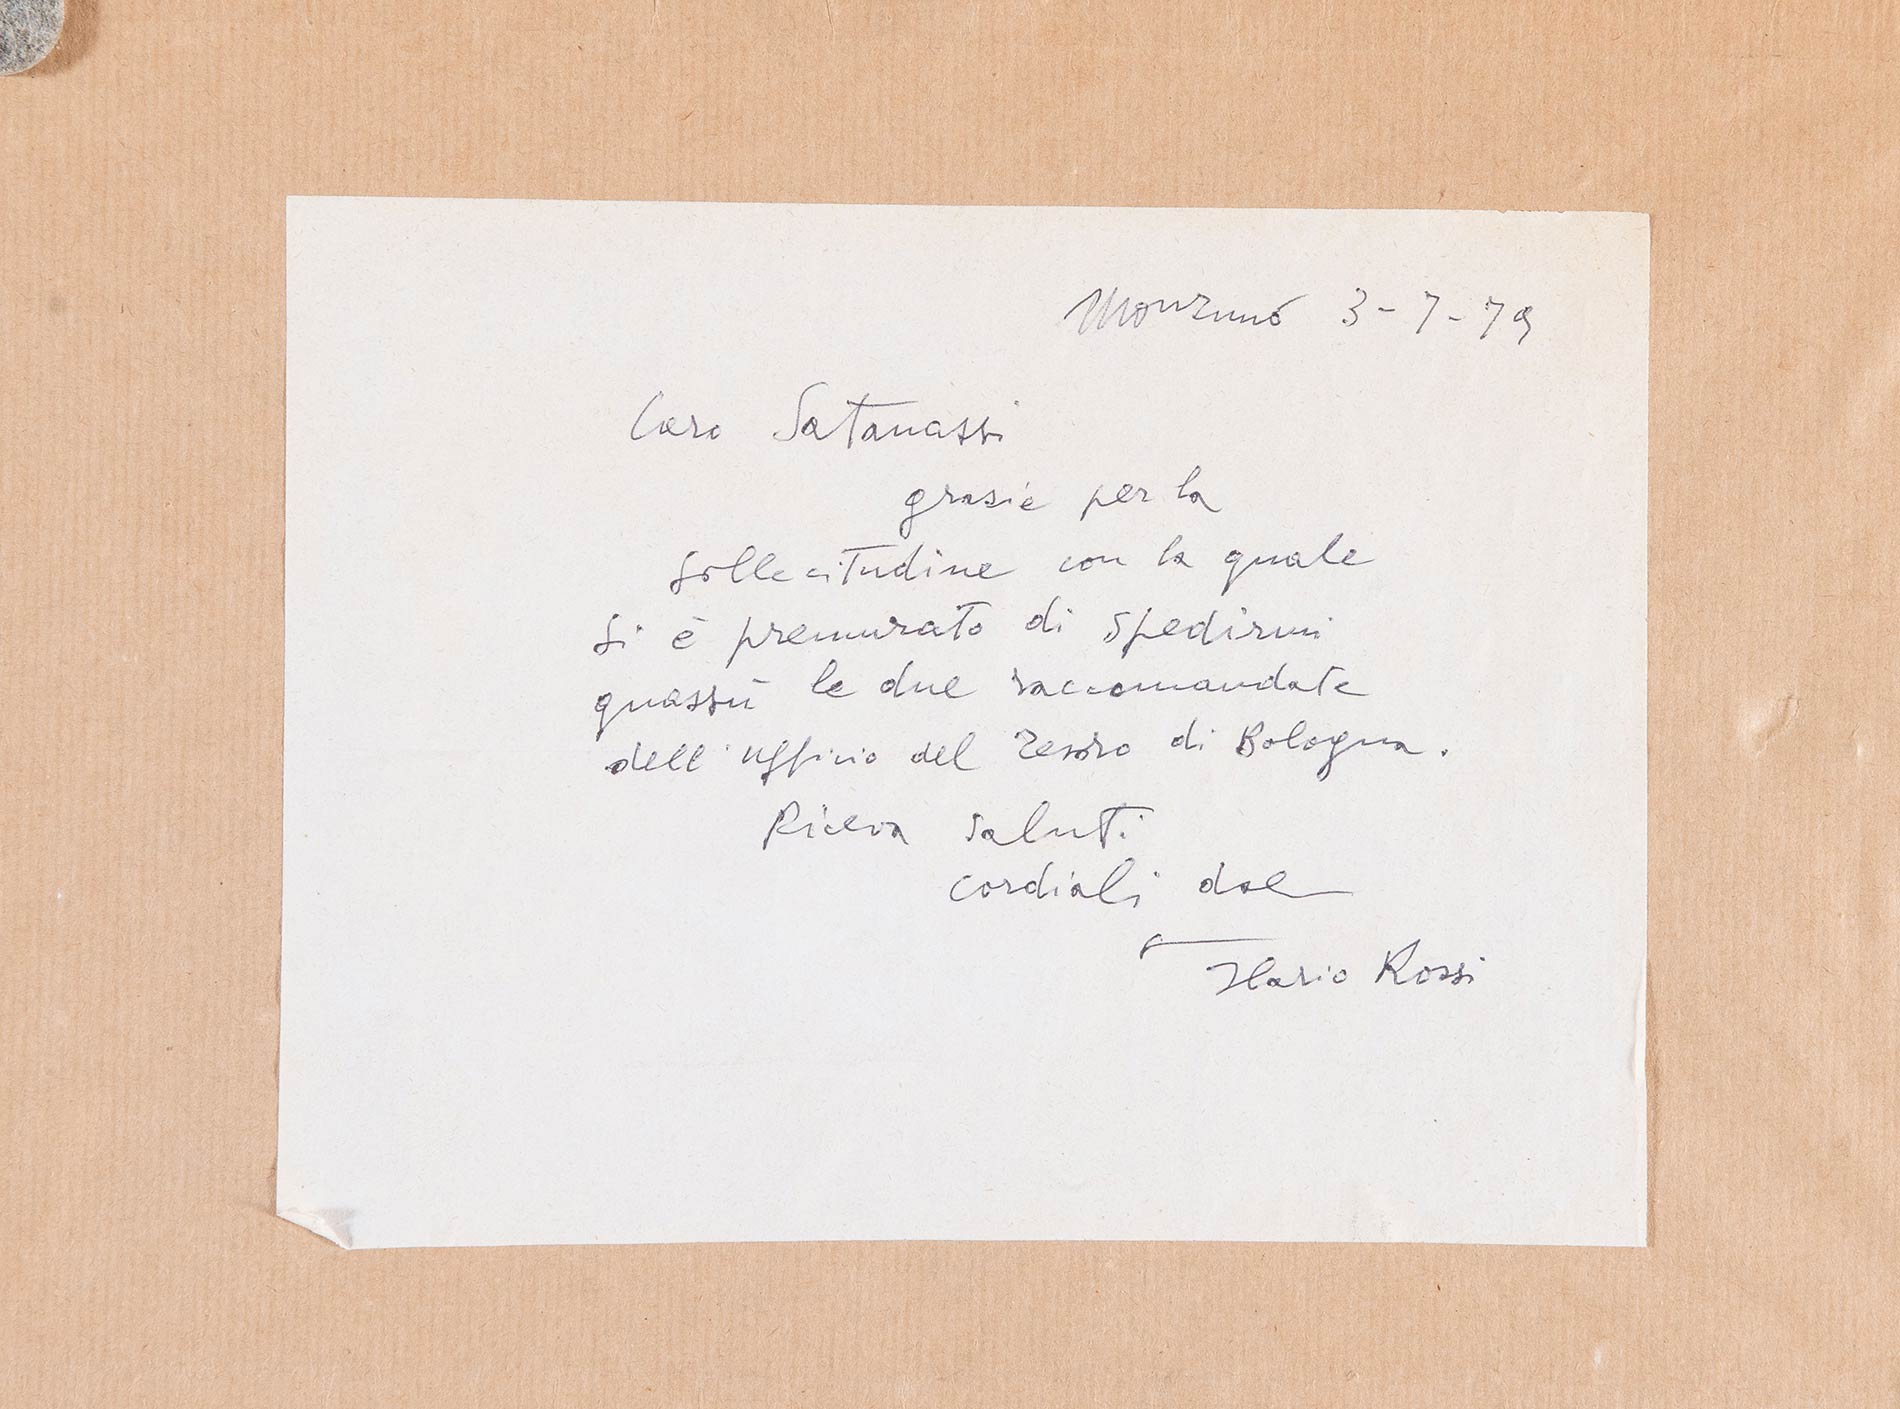 Monzuno 3-7-79
Caro Satanassi
grazie per la
sollecitudine con la quale
si è premurato di spedirmi
quassù le due raccomandate
dell'ufficio del Tesoro di Bologna.
Riceva saluti
cordiali dal
Ilario Rossi